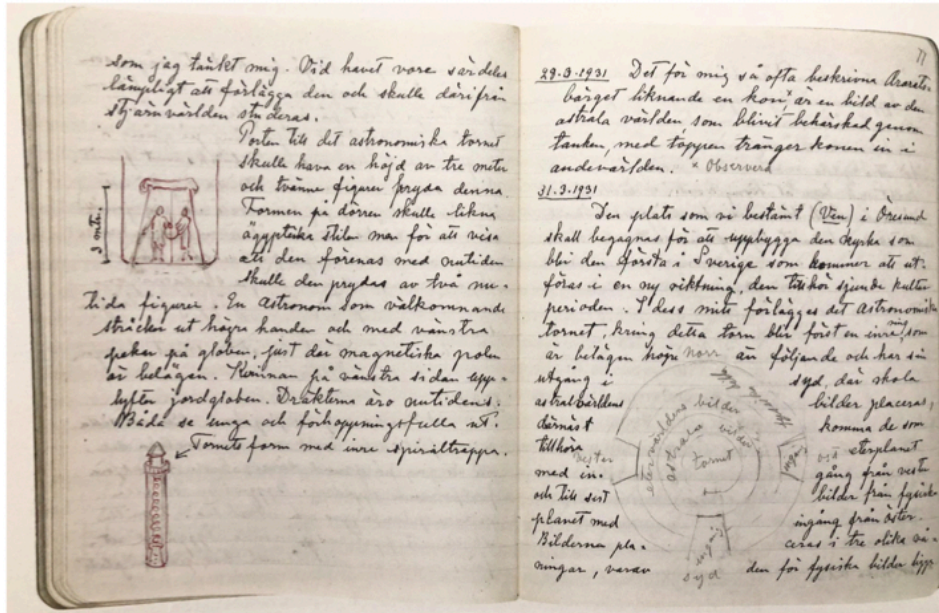 som jag tänkt mig. Vid havet vore särdeles
lämpligt att förlägga den och skulle därifrån
stjärnvärlden studeras.
Porten till det astronomiska tornet
skulle hava en höjd av tre meter
och tvänne figurer pryda denna.
Formen på dörren skulle likna
ägyptiska stilen men för att visa
att den förenas med nutiden
skulle den prydas av två nu-
tida figurer. En astronom som välkomnande
sträcker ut högra handen och med vänstra
pekar på globen, just där magnetiska polen
är belägen. Kvinnan på vänstra sidan upp-
lyfter jordgloben. Dräkterna äro nutidens.
Båda se unga och förhoppningsfulla ut.
Tornets form med inre spiraltrappa.
3 mtr.
71
29.3.1931 Det för mig så ofta beskrivna Ararats-
bärget liknande en kon, x är en bild av den
astrala världen som blivit behärskad genom
tanken, med toppen tränger konen in i
andevärlden. x Observera
31.3.1931
Den plats som vi bestämt (Ven) i Öresund
skall begagnas för att uppbygga den kyrka som
blir den första i Sverige som kommer att ut-
föras i en ny riktning, den tillhör sjunde kultur
perioden. I dess mitt förlägges det Astronomiska
tornet, kring detta torn blir först en inre ring, som
är belägen högre norr än följande och har sin
utgång i syd, där skola
astralvärldens bilder placeras,
därnäst komma de som
tillhöra eterplanet
med in- gång från väster
och till sist bilder från fysiska
planet med ingång från öster.
Bilderna pla- ceras i tre olika vå-
ningar, varav den för fysiska bilder ligger
etervärldens bilder
astrala bilder
tornet
väster
öst
ingång
ingång
syd